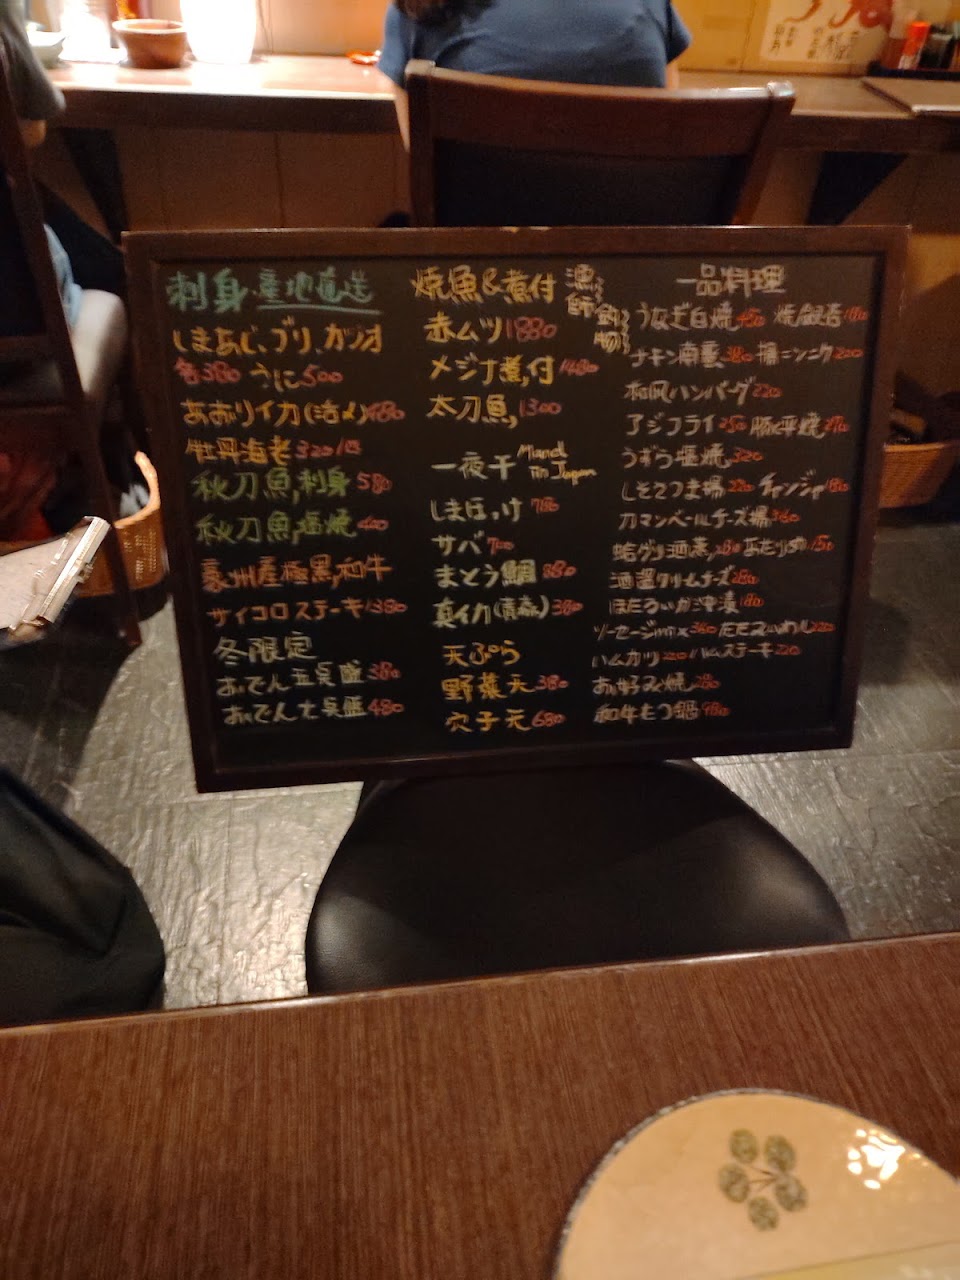 刺身・産地直送
しまあじ、ブリ、カツオ
各380 うに500
あおりイカ(活〆)480
牡丹海老320/1尾
秋刀魚刺身580
秋刀魚塩焼400
豪州産極黒和牛
サイコロステーキ1380
冬限定
おでん五点盛380
おでん七点盛480
焼魚&煮付
漁師
赤ムツ1880
メジナ煮付1480
太刀魚1300
一夜干 Miand in Japan
しまほっけ780
サバ700
まとう鯛880
真イカ(青森)380
天ぷら
野菜天380
穴子天680
一品料理
うなぎ白焼450 焼銀杏180
チキン南蛮380 揚ニンニク200
和風ハンバーグ220
アジフライ250 豚平焼270
うずら塩焼320
しそさつま揚220 チャンジャ180
カマンベールチーズ揚360
蛤グリ酒蒸280 あたりめ150
酒盗クリームチーズ280
ほたるいか沖漬180
ソーセージmix380 たたみいわし220
ハムカツ220 ハムステーキ220
お好み焼280
和牛もつ鍋980